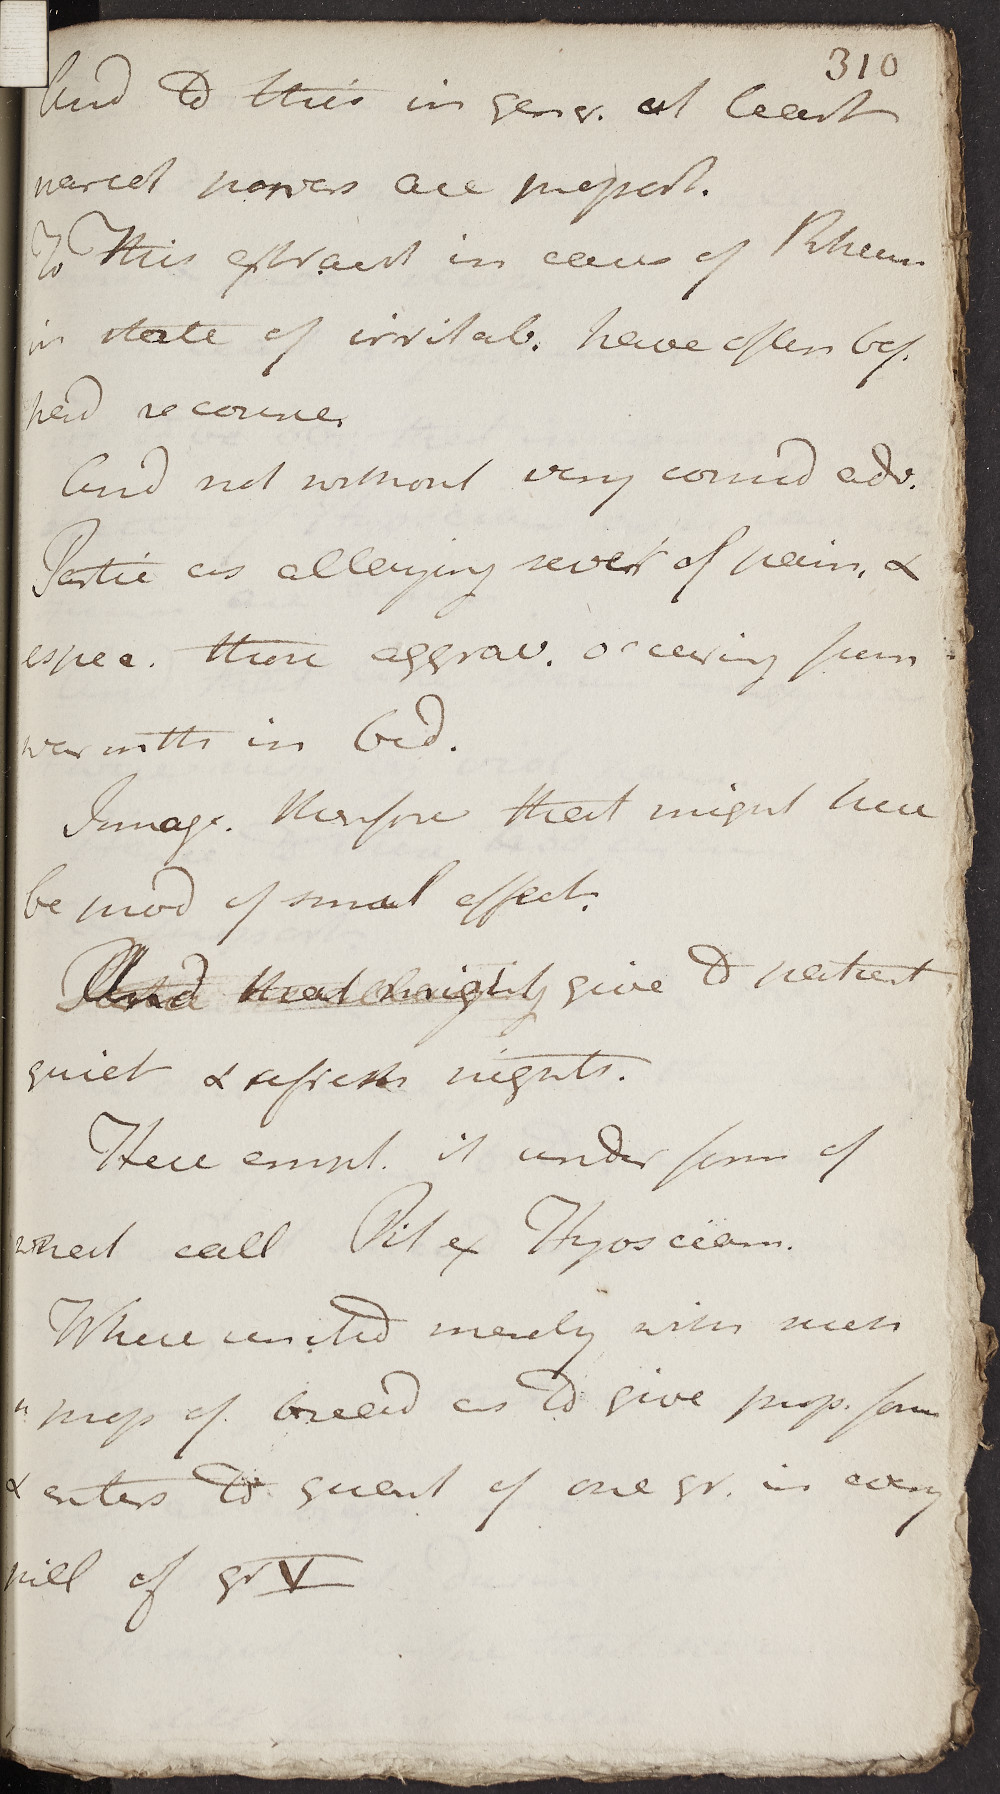 310
And to this in gener. at least
narcot powers are proport.
To This extract in cases of Rheum
in state of irritab. have often bef.
had recourse
And not without very consid adv.
Partic as allaying severt of pain, &
espec. those aggrav. occuring from
warmth in bed.
Imag. therefore that might here
be prod of small effect.
And that might give to patient
quiet & refresh nights.
Have empl. it under form of
what call Pil ex Hyosciam.
Where united merely with such
a prop of bread as to give prop. form
& enters to quant of one gr. in every
pill of gr V